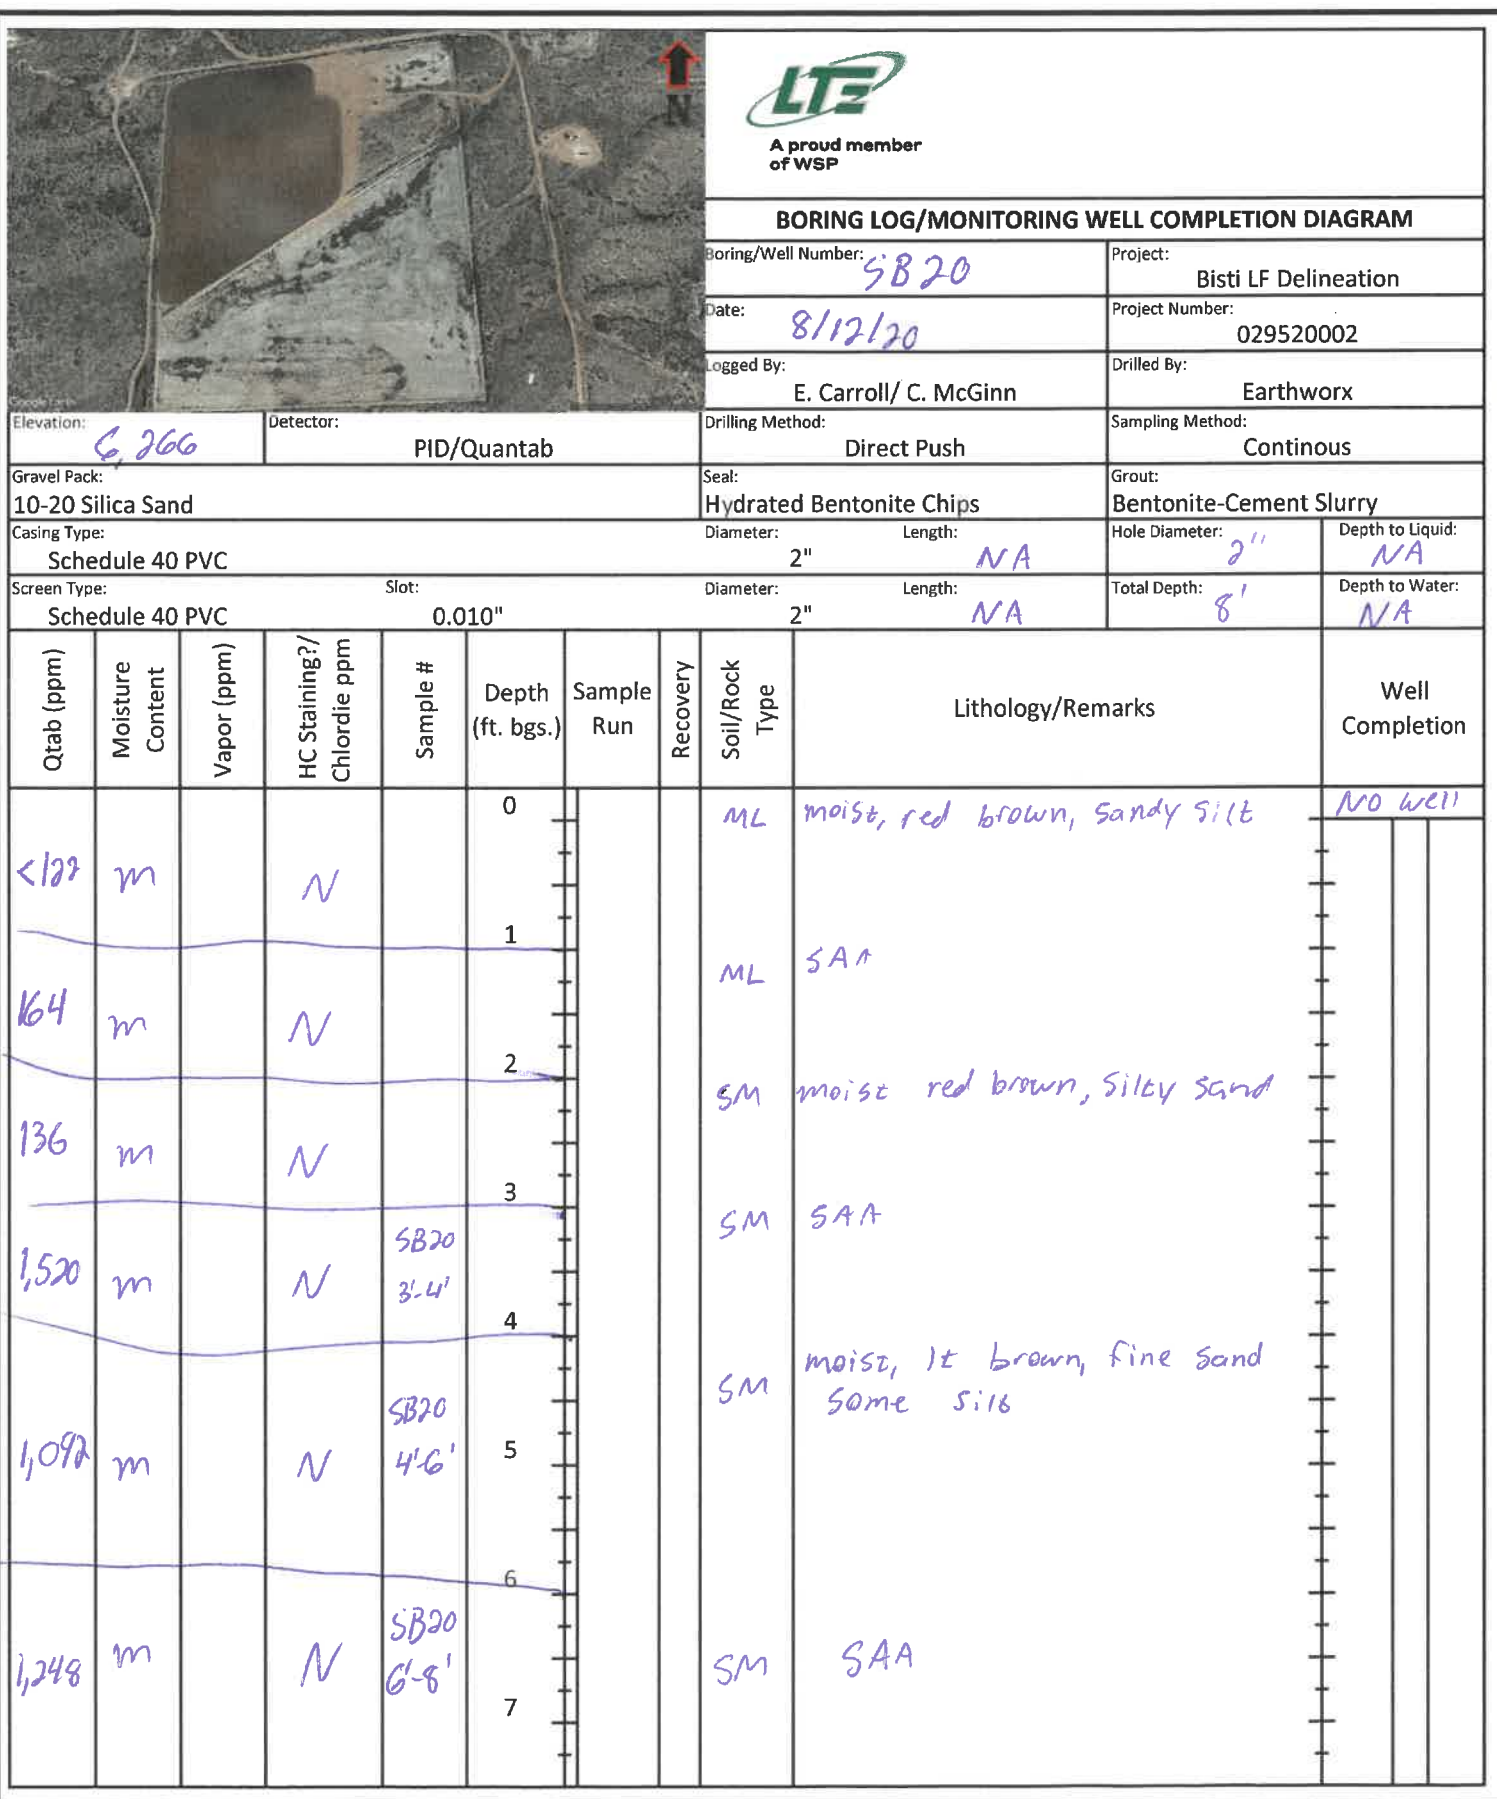 N
LTE
A proud member
of WSP
BORING LOG/MONITORING WELL COMPLETION DIAGRAM
Boring/Well Number: SB20
Project: Bisti LF Delineation
Date: 8/12/20
Project Number: 029520002
Logged By: E. Carroll/ C. McGinn
Drilled By: Earthworx
Google Earth
Elevation: 6,266
Detector: PID/Quantab
Drilling Method: Direct Push
Sampling Method: Continous
Gravel Pack: 10-20 Silica Sand
Seal: Hydrated Bentonite Chips
Grout: Bentonite-Cement Slurry
Casing Type: Schedule 40 PVC
Diameter: 2"
Length: NA
Hole Diameter: 2"
Depth to Liquid: NA
Screen Type: Schedule 40 PVC
Slot: 0.010"
Diameter: 2"
Length: NA
Total Depth: 8'
Depth to Water: NA
Qtab (ppm)
Moisture Content
Vapor (ppm)
HC Staining?/ Chlordie ppm
Sample #
Depth (ft. bgs.)
Sample Run
Recovery
Soil/Rock Type
Lithology/Remarks
Well Completion
0 ML moist, red brown, sandy silt No well
<122 m N
1
ML SAA
164 m N
2
SM moist red brown, silty sand
136 m N
3
SM SAA
1,520 m N SB20 3'-4'
4
SM moist, lt brown, fine sand
some silt
1,092 m N SB20 4'-6' 5
6
1,248 m N SB20 6'-8' SM SAA
7